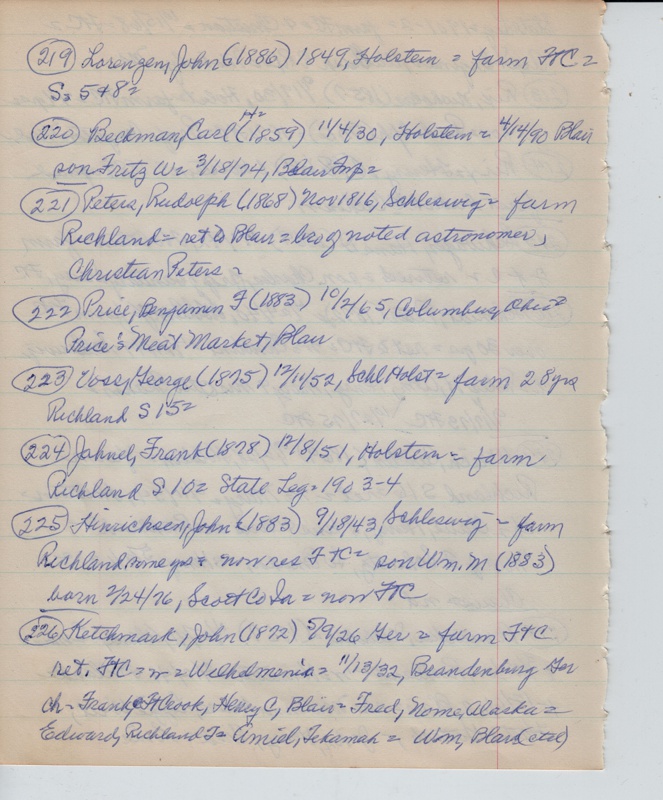 219 Lorenzen, John (1886) 1849, Holstein = farm FtC =
S5 & 8=
220 Beckman, Carl (1859) 11/4/30, Holstein = 4/14/90 Blair
son Fritz W = 3/18/74, Blair Imp =
221 Peters, Rudolph (1868) Nov 1816, Schleswig = farm
Richland = ret to Blair = bro of noted astronomer,
Christian Peters =
222 Price, Benjamin F (1883) 10/2/65, Columbus, Ohio =
Price's Meat Market, Blair
223 Voss, George (1875) 12/11/52, Schl Holst = farm 28 yrs
Richland S 15 =
224 Jahnel, Frank (1878) 12/8/51, Holstein = farm
Richland S 10 = State Leg = 1903-4
225 Hinricksen, John (1883) 9/18/43, Schleswig = farm
Richland some yrs = now res FtC = son Wm. M (1883)
born 2/24/76, Scott Co Ia = now FtC
226 Ketchmark, John (1872) 5/9/26 Ger = farm FtC
ret. FtC = w = Wilhelmenia = 11/13/32, Brandenburg Ger
ch - Frank, Ft Crook, Henry C, Blair = Fred, Nome, Alaska =
Edward, Richland T = Amiel, Tekamah = Wm, Blair (etal)